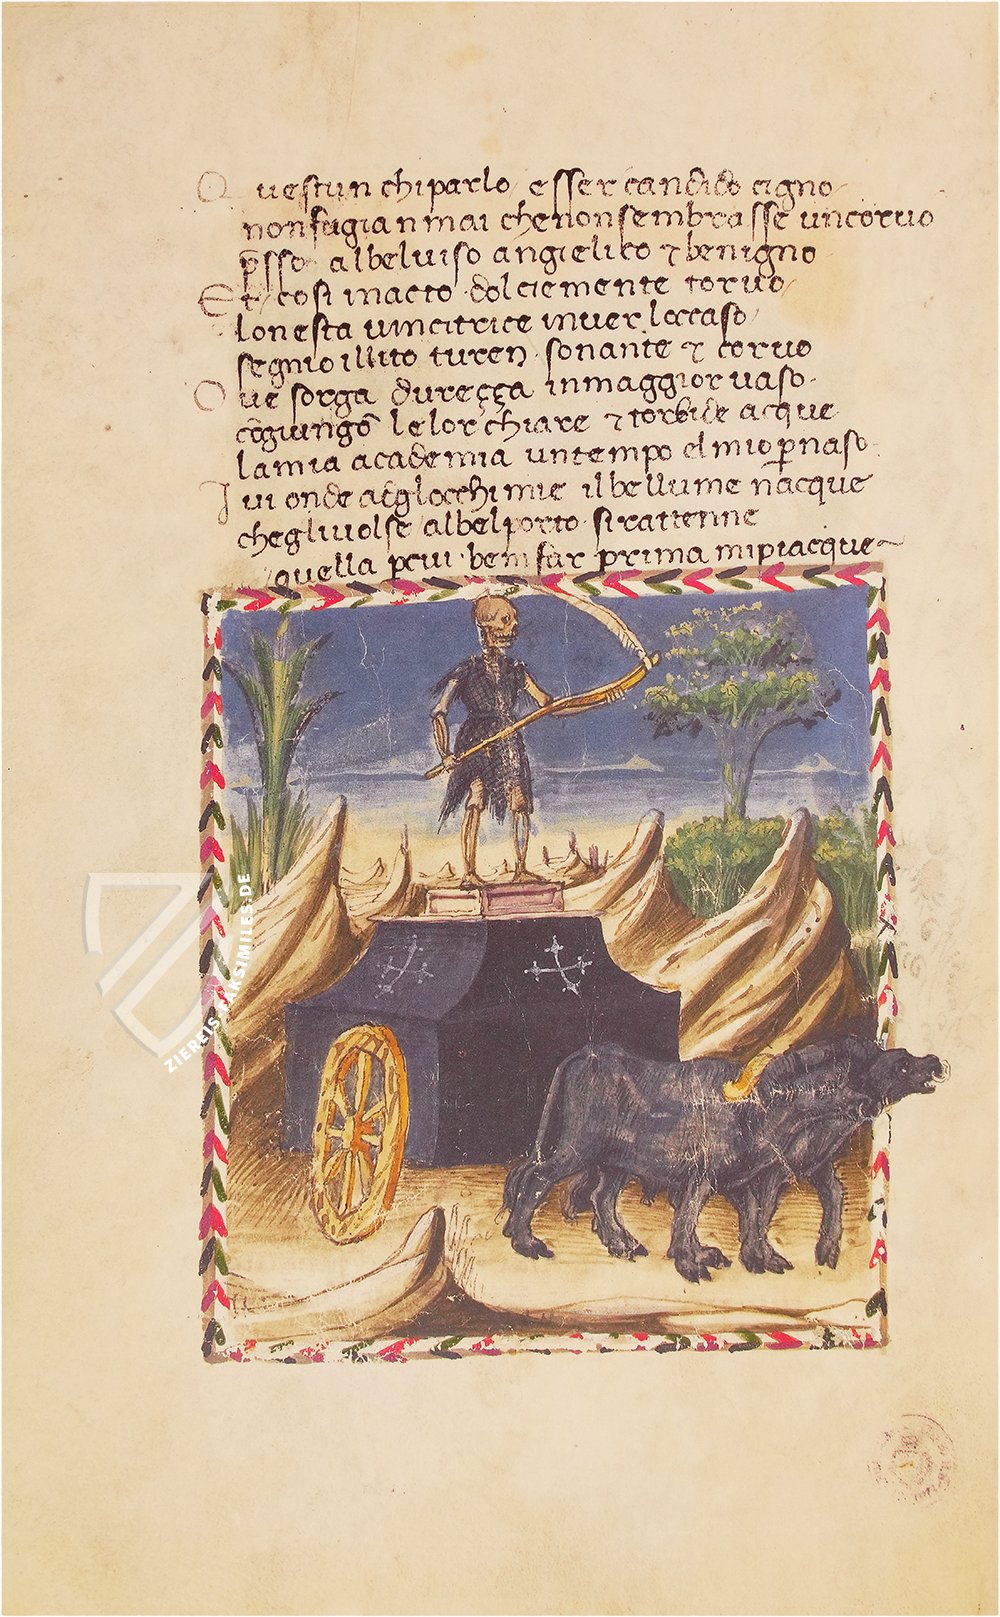 Q uestun chi parlo esser candido cigno
non fugian mai che non sembrasse un coruo
psso al bel uiso angielico & benigno
Et cosi inacto dolciemente toruo
lonesta uincitrice inuer loccaso
segnio illito turen sonante & coruo
O ue sorga durezza in maggior uaso
cōgiungō le lor chiare & torbide acque
la mia academia un tempo el mio pnaso
I ui onde aglocchi mie il bel lume nacque
che gli uolse al bel porto si rattenne
quella p cui ben far prima mi piacque
ZIEREIS-FAKSIMILES.DE